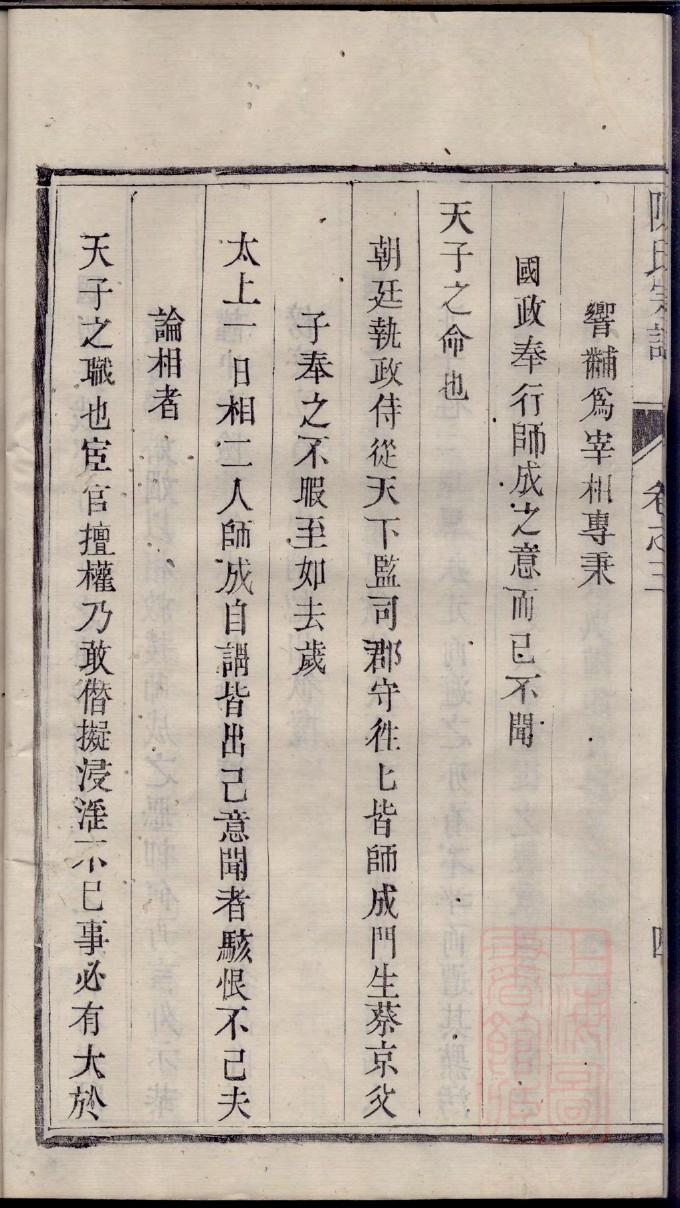 陳氏宗譜 卷之三 四
響黼爲宰相專秉
國政奉行師成之意而已不聞
天子之命也
朝廷執政侍從天下監司郡守徃匕皆師成門生蔡京父
子奉之不暇至如去歲
太上一日相二人師成自謂皆出己意聞者駭恨不已夫
論相者
天子之職也宦官擅權乃敢僭擬浸淫不已事必有大於